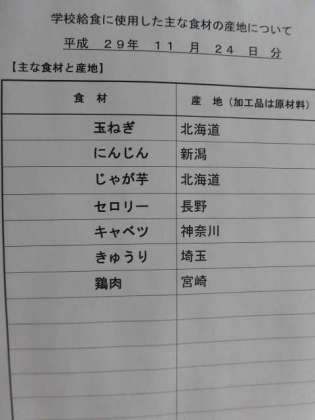 学校給食に使用した主な食材の産地について
平成 29年 11 月 24 日 分
【主な食材と産地】
食 材 産 地（加工品は原材料）
玉ねぎ 北海道
にんじん 新潟
じゃが芋 北海道
セロリー 長野
キャベツ 神奈川
きゅうり 埼玉
鶏肉 宮崎